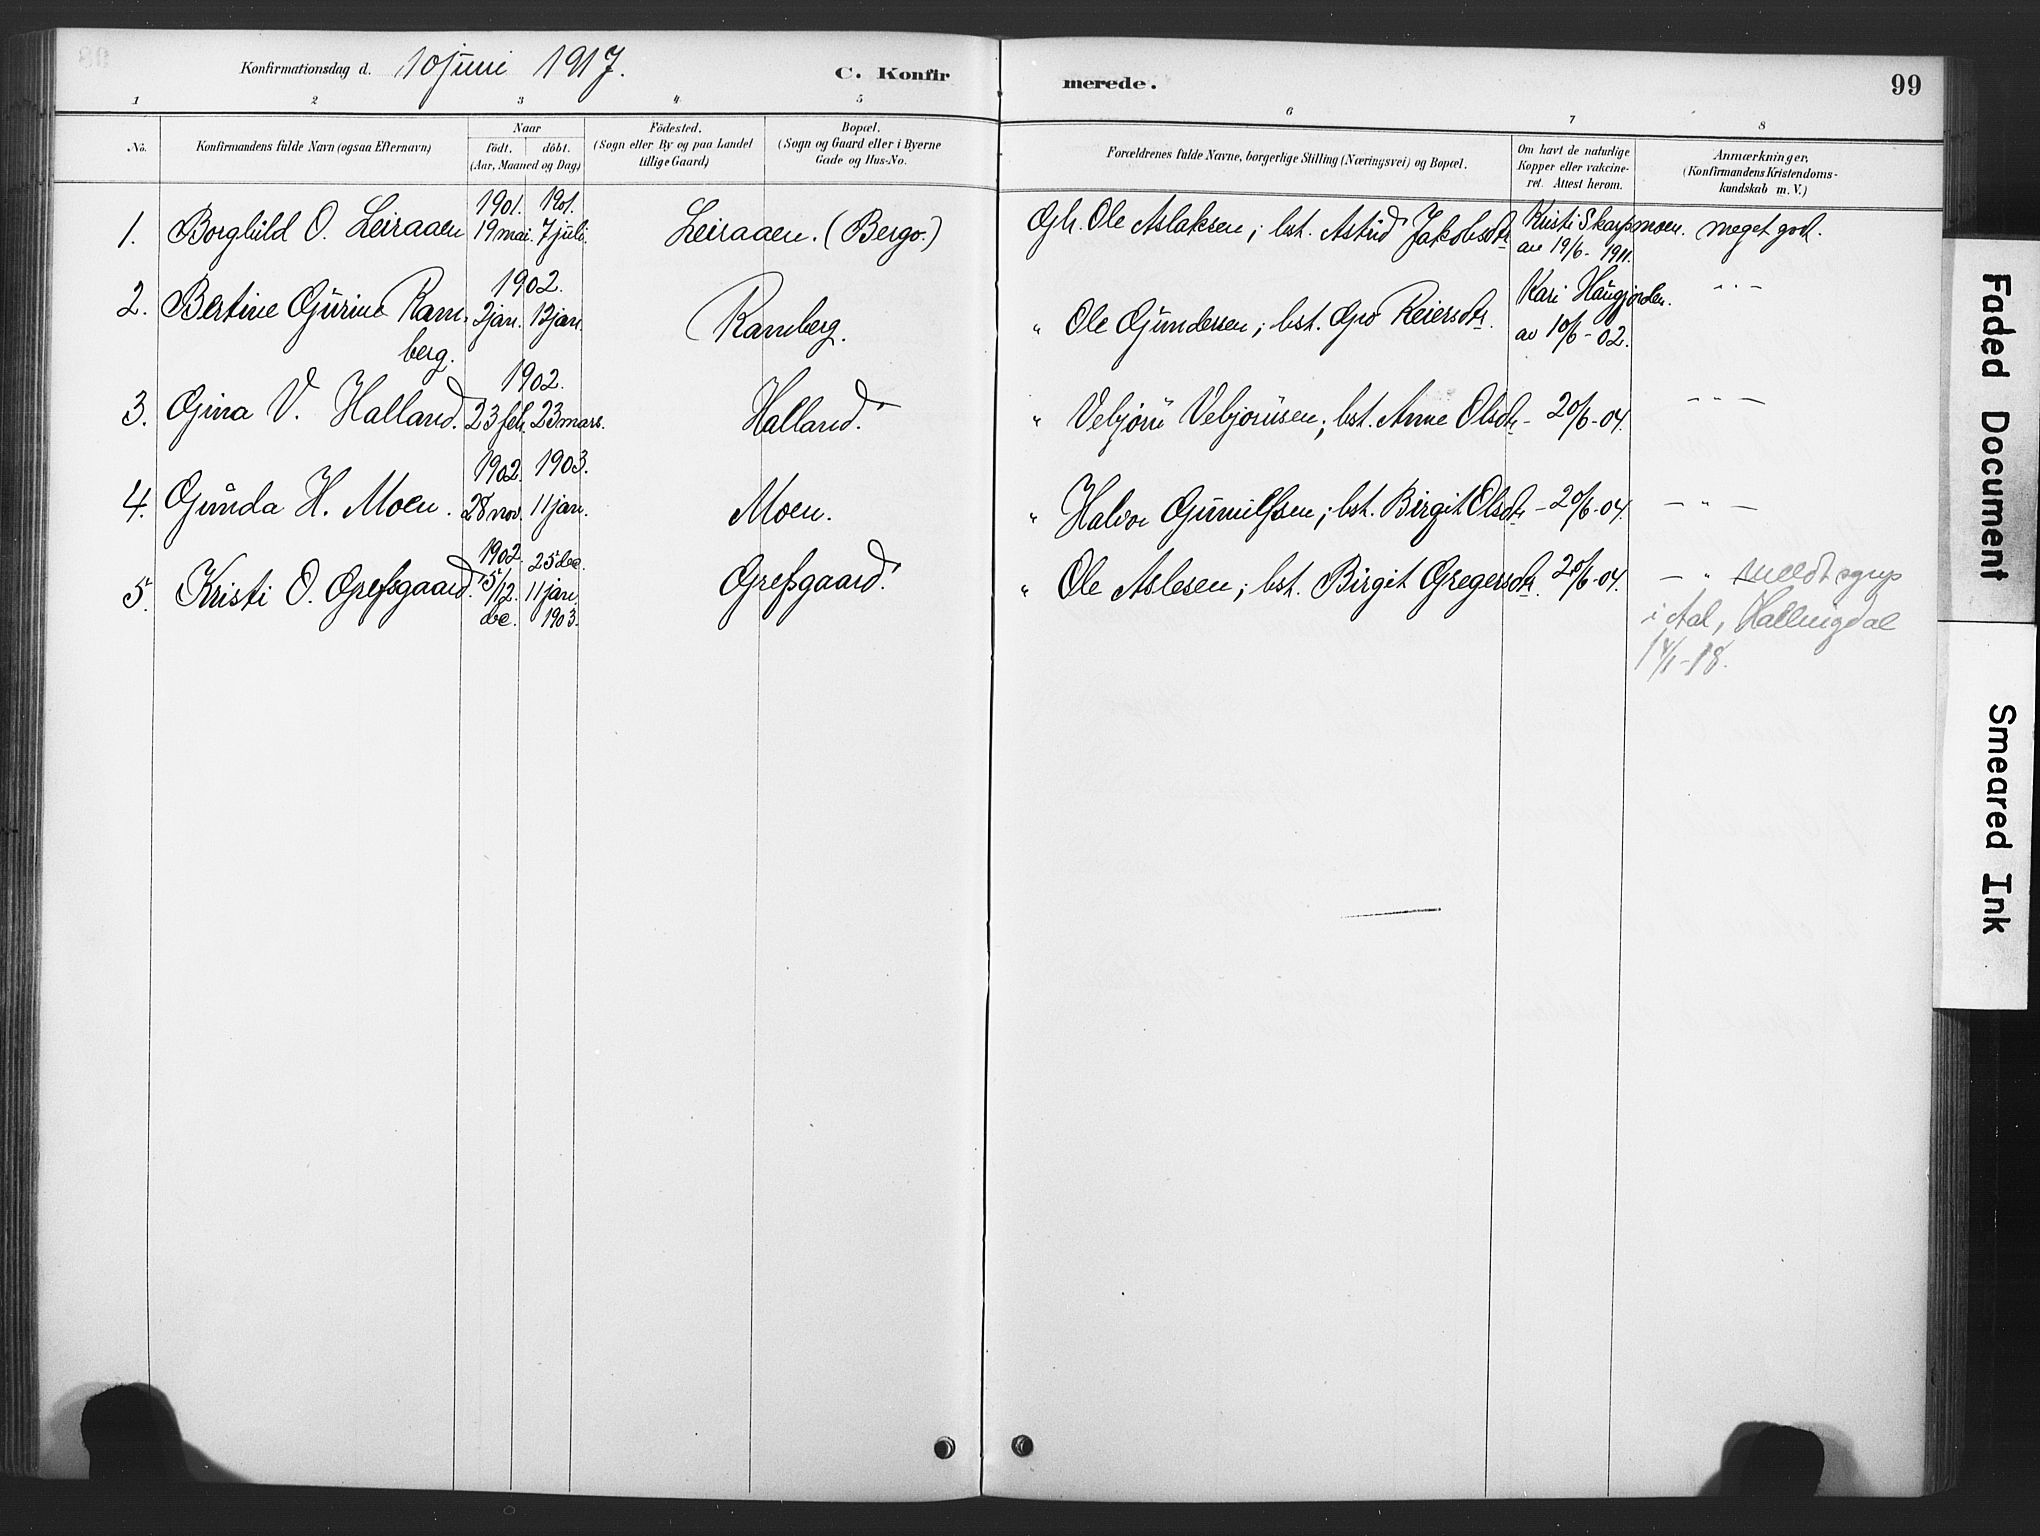 Konfirmationsdag d. 10 juni 1917. C. Konfir merede. 99
1 2 3 4 5 6 7 8
No. Konfirmandens fulde Navn (ogsaa Efternavn) Naar Födested. Bopæl. Forældrenes fulde Navne, borgerlige Stilling (Næringsvei) og Bopæl. Om havt de naturlige Anmærkninger,
födt. döbt. (Sogn eller By og paa Landet (Sogn og Gaard eller i Byerne Kopper eller vakcine- (Konfirmandens Kristendoms-
(Aar, Maaned og Dag) tillige Gaard) Gade og Hus-No. ret. Attest herom. kundskab m. V.)
1901. 1901.
1. Borghild O. Leiraaen 19 mai. 7 juli. Leiraaen. (Bergo.) Gbr. Ole Aslaksen; hst. Astrid Jakobsdtr. Kristi Skarpmoen. meget godt.
av 19/6 - 1911.
1902. Kari Haugjorden.
2. Bertine Gurine Ram- 2 jan. 12 jan. Ramberg. " Ole Gundersen; hst. Gro Reiersdtr. av 10/6 - 02. - " -
berg.
1902.
3. Gina V. Halland. 23 feb. 23 mars. Halland. " Vebjørn Vebjørnsen; hst. Anne Olsdtr. - 20/6 - 04. - " -
1902. 1903.
4. Gunda H. Moen. 28 nov. 11 jan. Moen. " Halvor Gunnulfsen; hst. Birgit Olsdtr. - 20/6 - 04. - " -
1902. 25 de.
5. Kristi O. Grefsgaard. 5/12 11 jan. Grefsgaard. " Ole Aslesen; hst. Birgit Gregersdtr. 20/6 - 04. - "
de. 1903.
i Aal, Hallingdal
14/1 - 18.
Faded Document
Smeared Ink